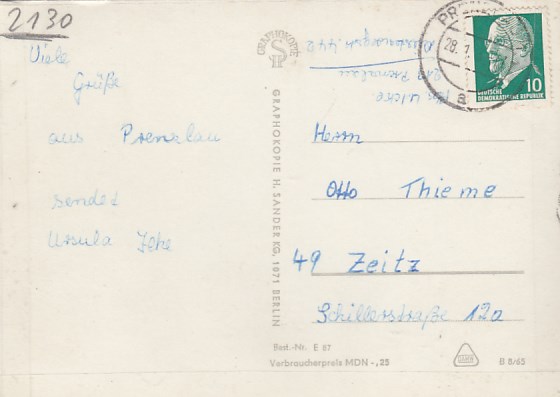 2130
Viele
Grüße
aus Prenzlau
sendet
Ursula
GRAPHOKOPIE
GRAPHOKOPIE H. SANDER KG, 1071 BERLIN
213 Prenzlau
PRENZLAU
28.
a
10
DEUTSCHE
DEMOKRATISCHE REPUBLIK
Herrn
Otto Thieme
49 Zeitz
Schillerstraße 12a
Best.-Nr. E 87
Verbraucherpreis MDN -,25
B 8/65